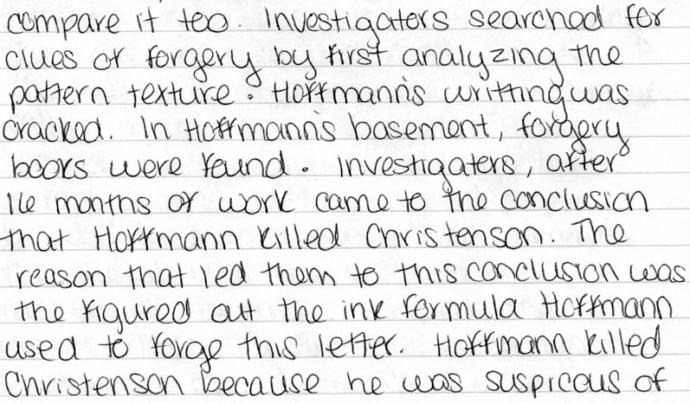 compare it too. Investigaters searched for
clues of forgery by first analyzing the
pattern texture. Hoffmann's writting was
cracked. In Hoffmann's basement, forgery
books were found. Investigaters, after
16 months of work came to the conclusion
that Hoffmann killed Christenson. The
reason that led them to this conclusion was
the figured out the ink formula Hoffmann
used to forge this letter. Hoffmann killed
Christenson because he was suspicous of